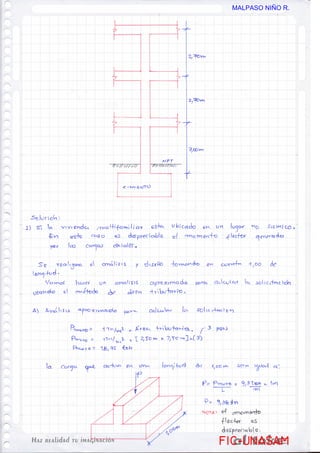 MALPASO NIÑO R.
2,70m
2,70m
3,00m
NPT
CIMIENTO
Solución:
1) Si la vivienda multifamiliar esta ubicado en un lugar no sismico.
En este caso es despreciable el momento flector generado
por las cargas axiales.
Se realizara el análisis y diseño tomando en cuenta 1,00 de
longitud.
Vamos hacer un analisis aproximado para calcular la solicitación
usando el método de área tributaria.
a) Análisis aproximado para calcular la solicitacion
Pmuro = 1 Tn/m² x Área tributaria x 3 pisos
la carga que cae en un longitud de 1,00m sera igual a:
NOTA: el momento
flector es
despreciable.
1,00m
Haz realidad tu imaginación
FIC-UNASAM